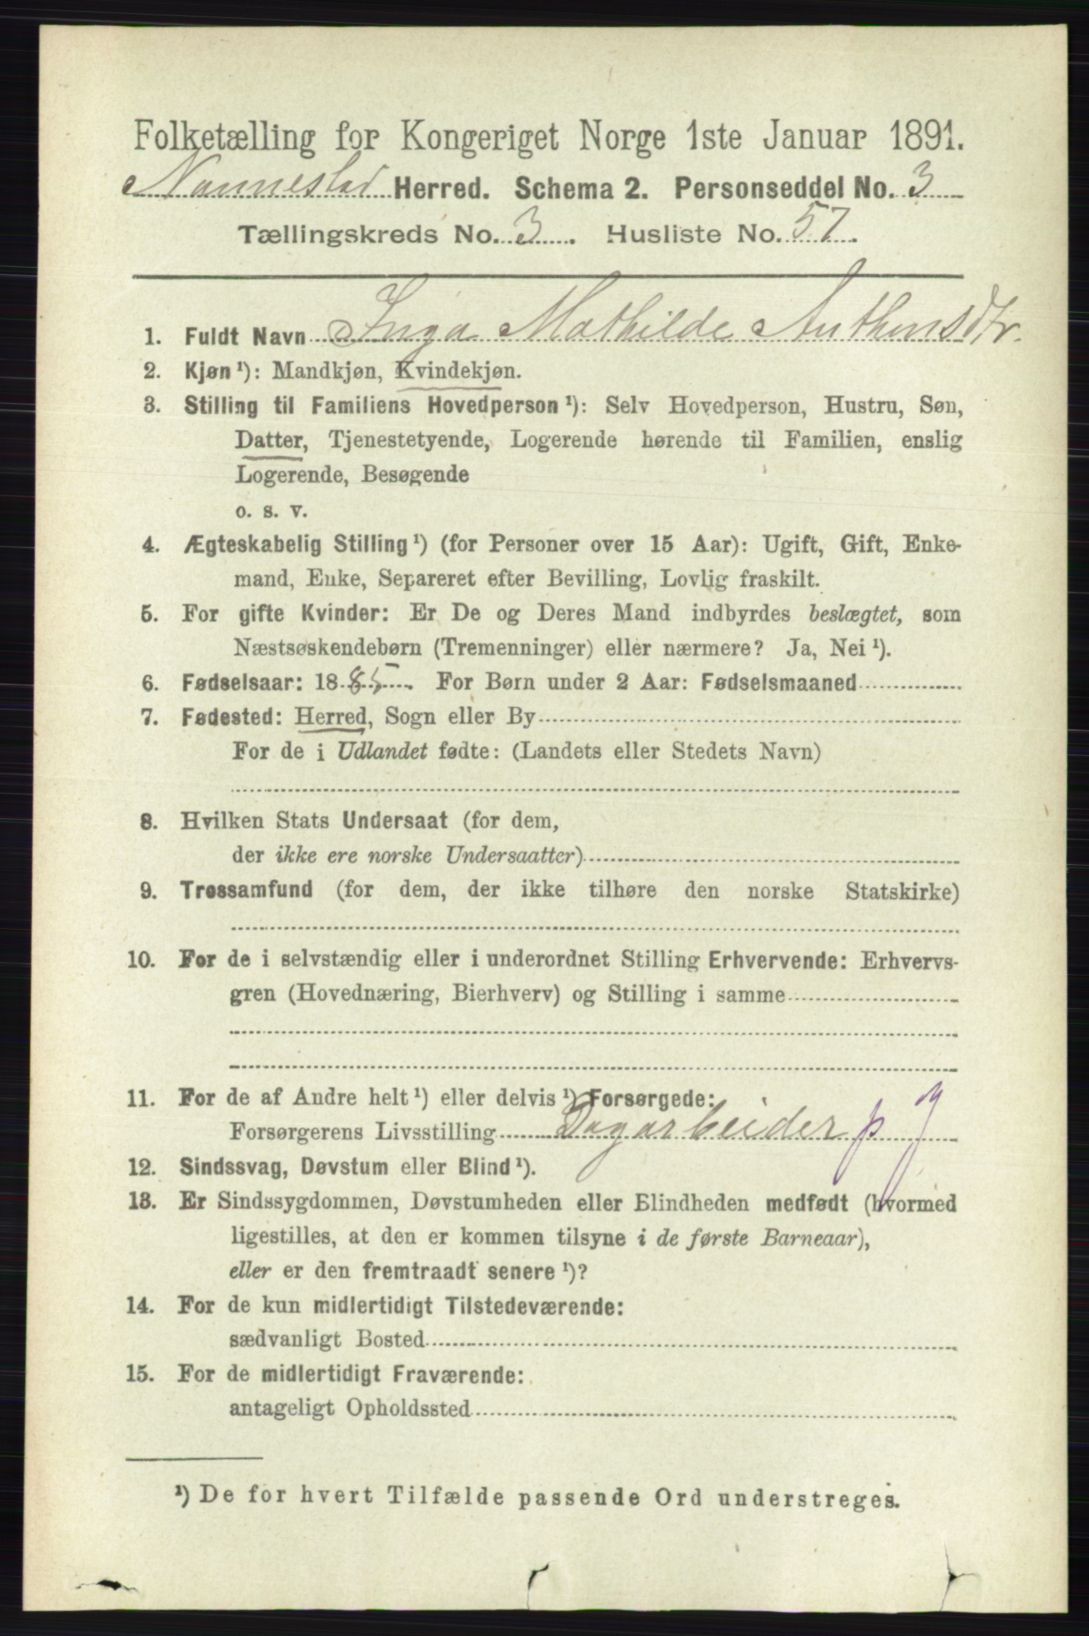 Folketælling for Kongeriget Norge 1ste Januar 1891.
Nannestad Herred. Schema 2. Personseddel No. 3
Tællingskreds No. 3. Husliste No. 57.
1. Fuldt Navn Inga Mathilde Anthonsdtr.
2. Kjøn ¹): Mandkjøn, Kvindekjøn.
3. Stilling til Familiens Hovedperson ¹): Selv Hovedperson, Hustru, Søn,
Datter, Tjenestetyende, Logerende hørende til Familien, enslig
Logerende, Besøgende
o. s. v.
4. Ægteskabelig Stilling ¹) (for Personer over 15 Aar): Ugift, Gift, Enke-
mand, Enke, Separeret efter Bevilling, Lovlig fraskilt.
5. For gifte Kvinder: Er De og Deres Mand indbyrdes beslægtet, som
Næstsøskendebørn (Tremenninger) eller nærmere? Ja, Nei ¹).
6. Fødselsaar: 1885. For Børn under 2 Aar: Fødselsmaaned
7. Fødested: Herred, Sogn eller By
For de i Udlandet fødte: (Landets eller Stedets Navn)
8. Hvilken Stats Undersaat (for dem,
der ikke ere norske Undersaatter)
9. Trossamfund (for dem, der ikke tilhøre den norske Statskirke)
10. For de i selvstændig eller i underordnet Stilling Erhvervende: Erhvervs-
gren (Hovednæring, Bierhverv) og Stilling i samme
11. For de af Andre helt ¹) eller delvis ¹) Forsørgede:
Forsørgerens Livsstilling Dagarbeider p g
12. Sindssvag, Døvstum eller Blind ¹).
13. Er Sindssygdommen, Døvstumheden eller Blindheden medfødt (hvormed
ligestilles, at den er kommen tilsyne i de første Barneaar),
eller er den fremtraadt senere ¹)?
14. For de kun midlertidigt Tilstedeværende:
sædvanligt Bosted
15. For de midlertidigt Fraværende:
antageligt Opholdssted
¹) De for hvert Tilfælde passende Ord understreges.